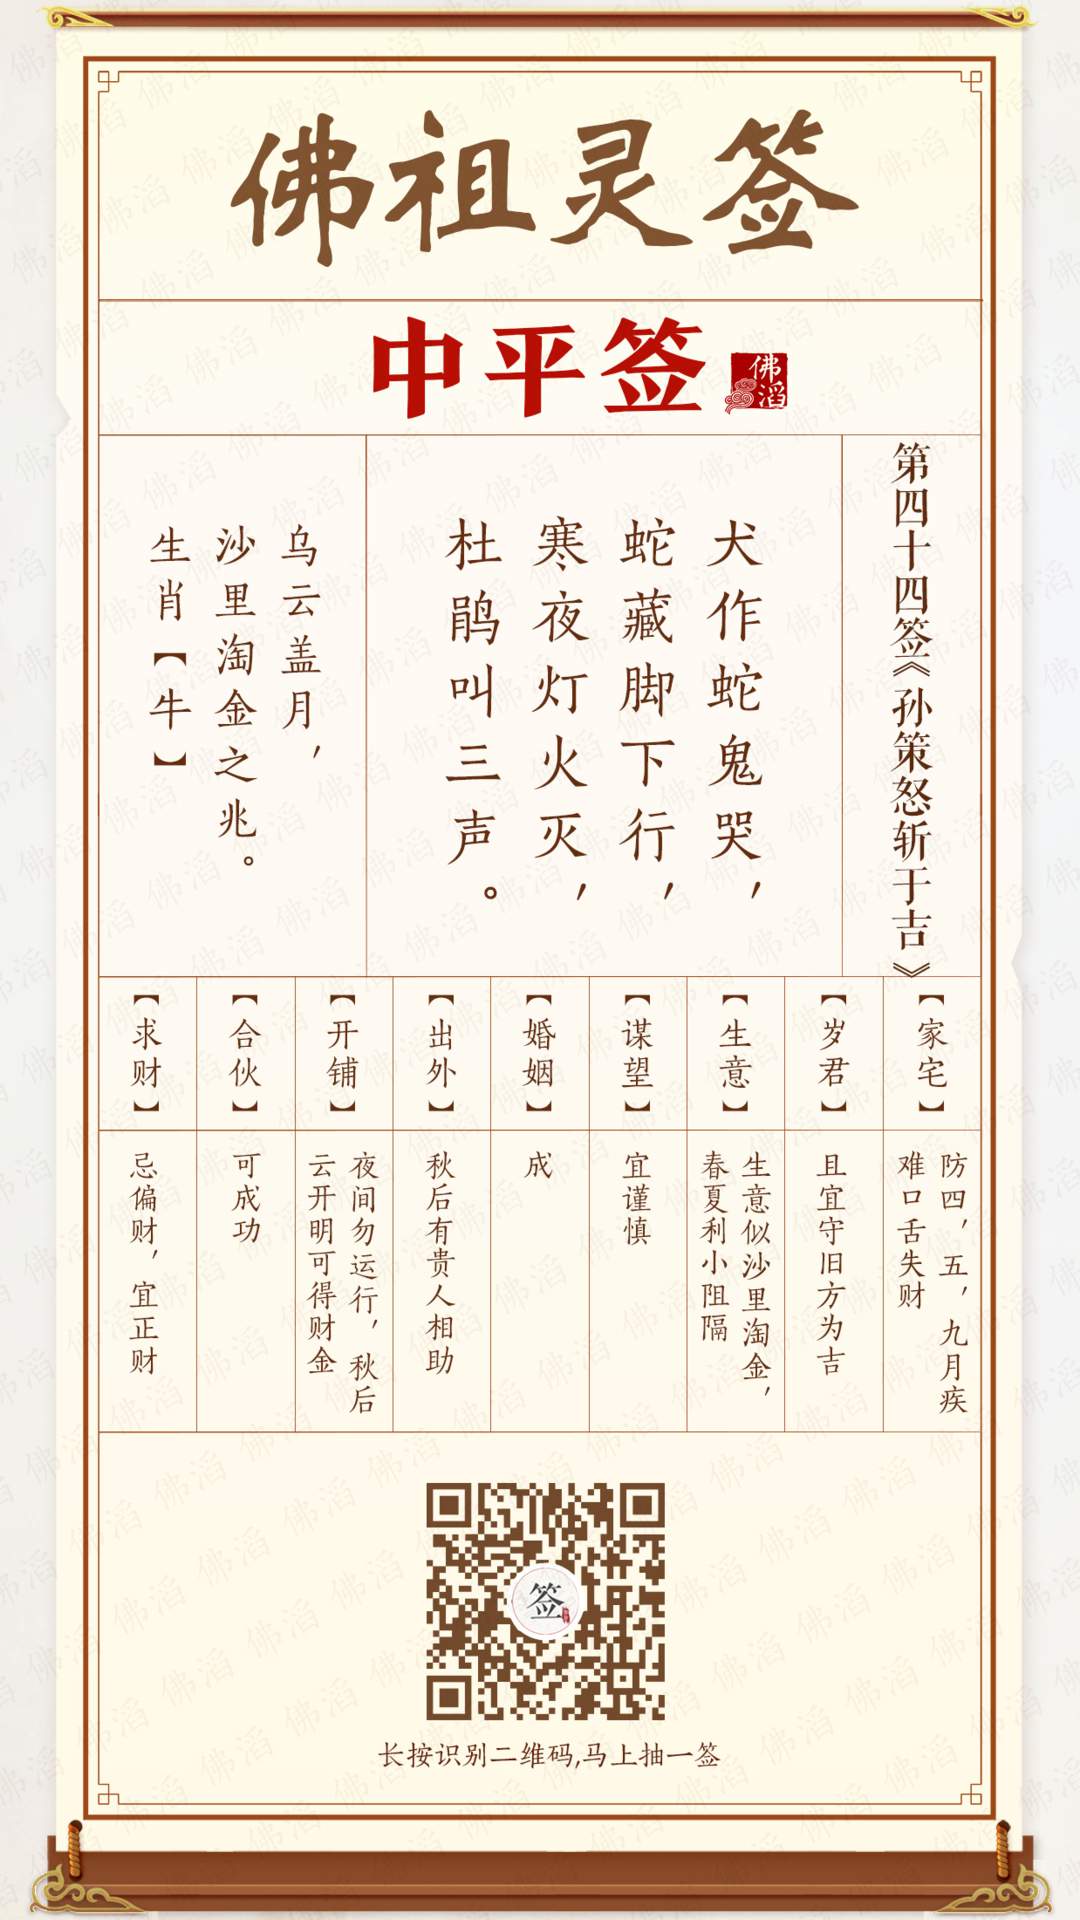 佛祖灵签
中平签
佛滔
第四十四签《孙策怒斩于吉》
犬作蛇鬼哭，
蛇藏脚下行，
寒夜灯火灭，
杜鹃叫三声。
乌云盖月，
沙里淘金之兆。
生肖【牛】
【家宅】
防四，五，九月疾
难口舌失财
【岁君】
且宜守旧方为吉
【生意】
生意似沙里淘金，
春夏利小阻隔
【谋望】
宜谨慎
【婚姻】
成
【出外】
秋后有贵人相助
【开铺】
夜间勿运行，秋后
云开明可得财金
【合伙】
可成功
【求财】
忌偏财，宜正财
签
长按识别二维码,马上抽一签